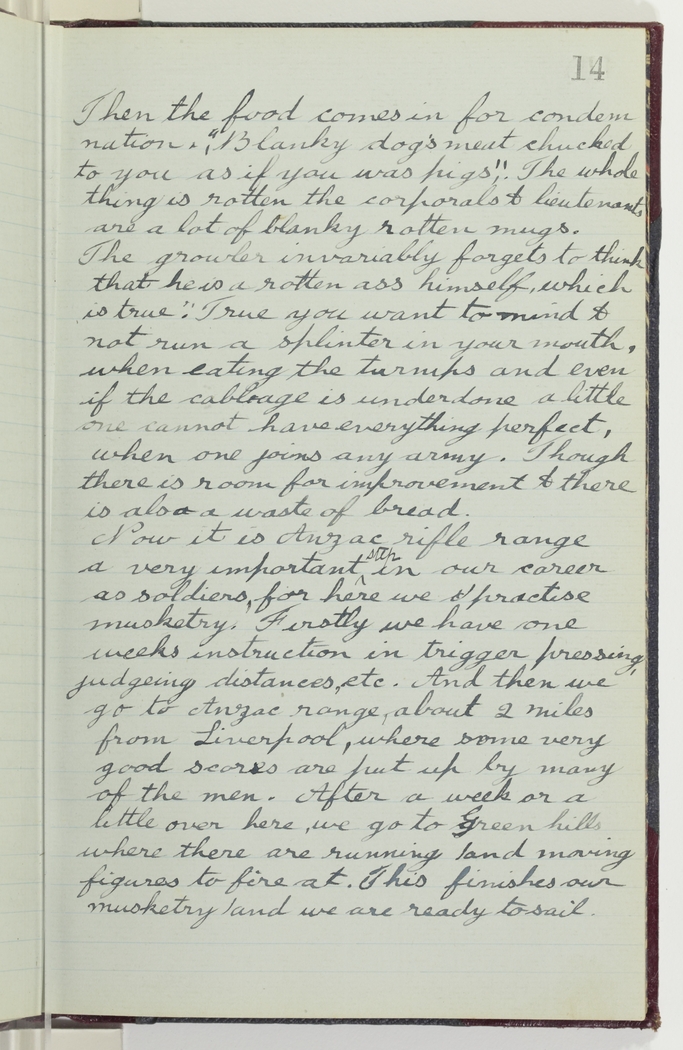 14
Then the food comes in for condem
nation. "Blanky dog's meat chucked
to you as if you was pigs"! The whole
thing is rotten the corporals & lieutenants
are a lot of blanky rotten mugs.
The growler invariably forgets to think
that he is a rotten ass himself, which
is true": True you want to mind &
not run a splinter in your mouth,
when eating the turnips and even
if the cabbage is underdone a little
one cannot have everything perfect,
when one joins any army. Though
there is room for improvement & there
is also a waste of bread.
Now it is Anzac rifle range
a very important step in our career
as soldiers, for here we practise
musketry. Firstly we have one
weeks instruction in trigger pressing,
judgeing distances, etc. And then we
go to Anzac range, about 2 miles
from Liverpool, where some very
good scores are put up by many
of the men. After a week or a
little over here, we go to Green hills
where there are running /and moving
figures to fire at. This finishes our
musketry /and we are ready to sail.